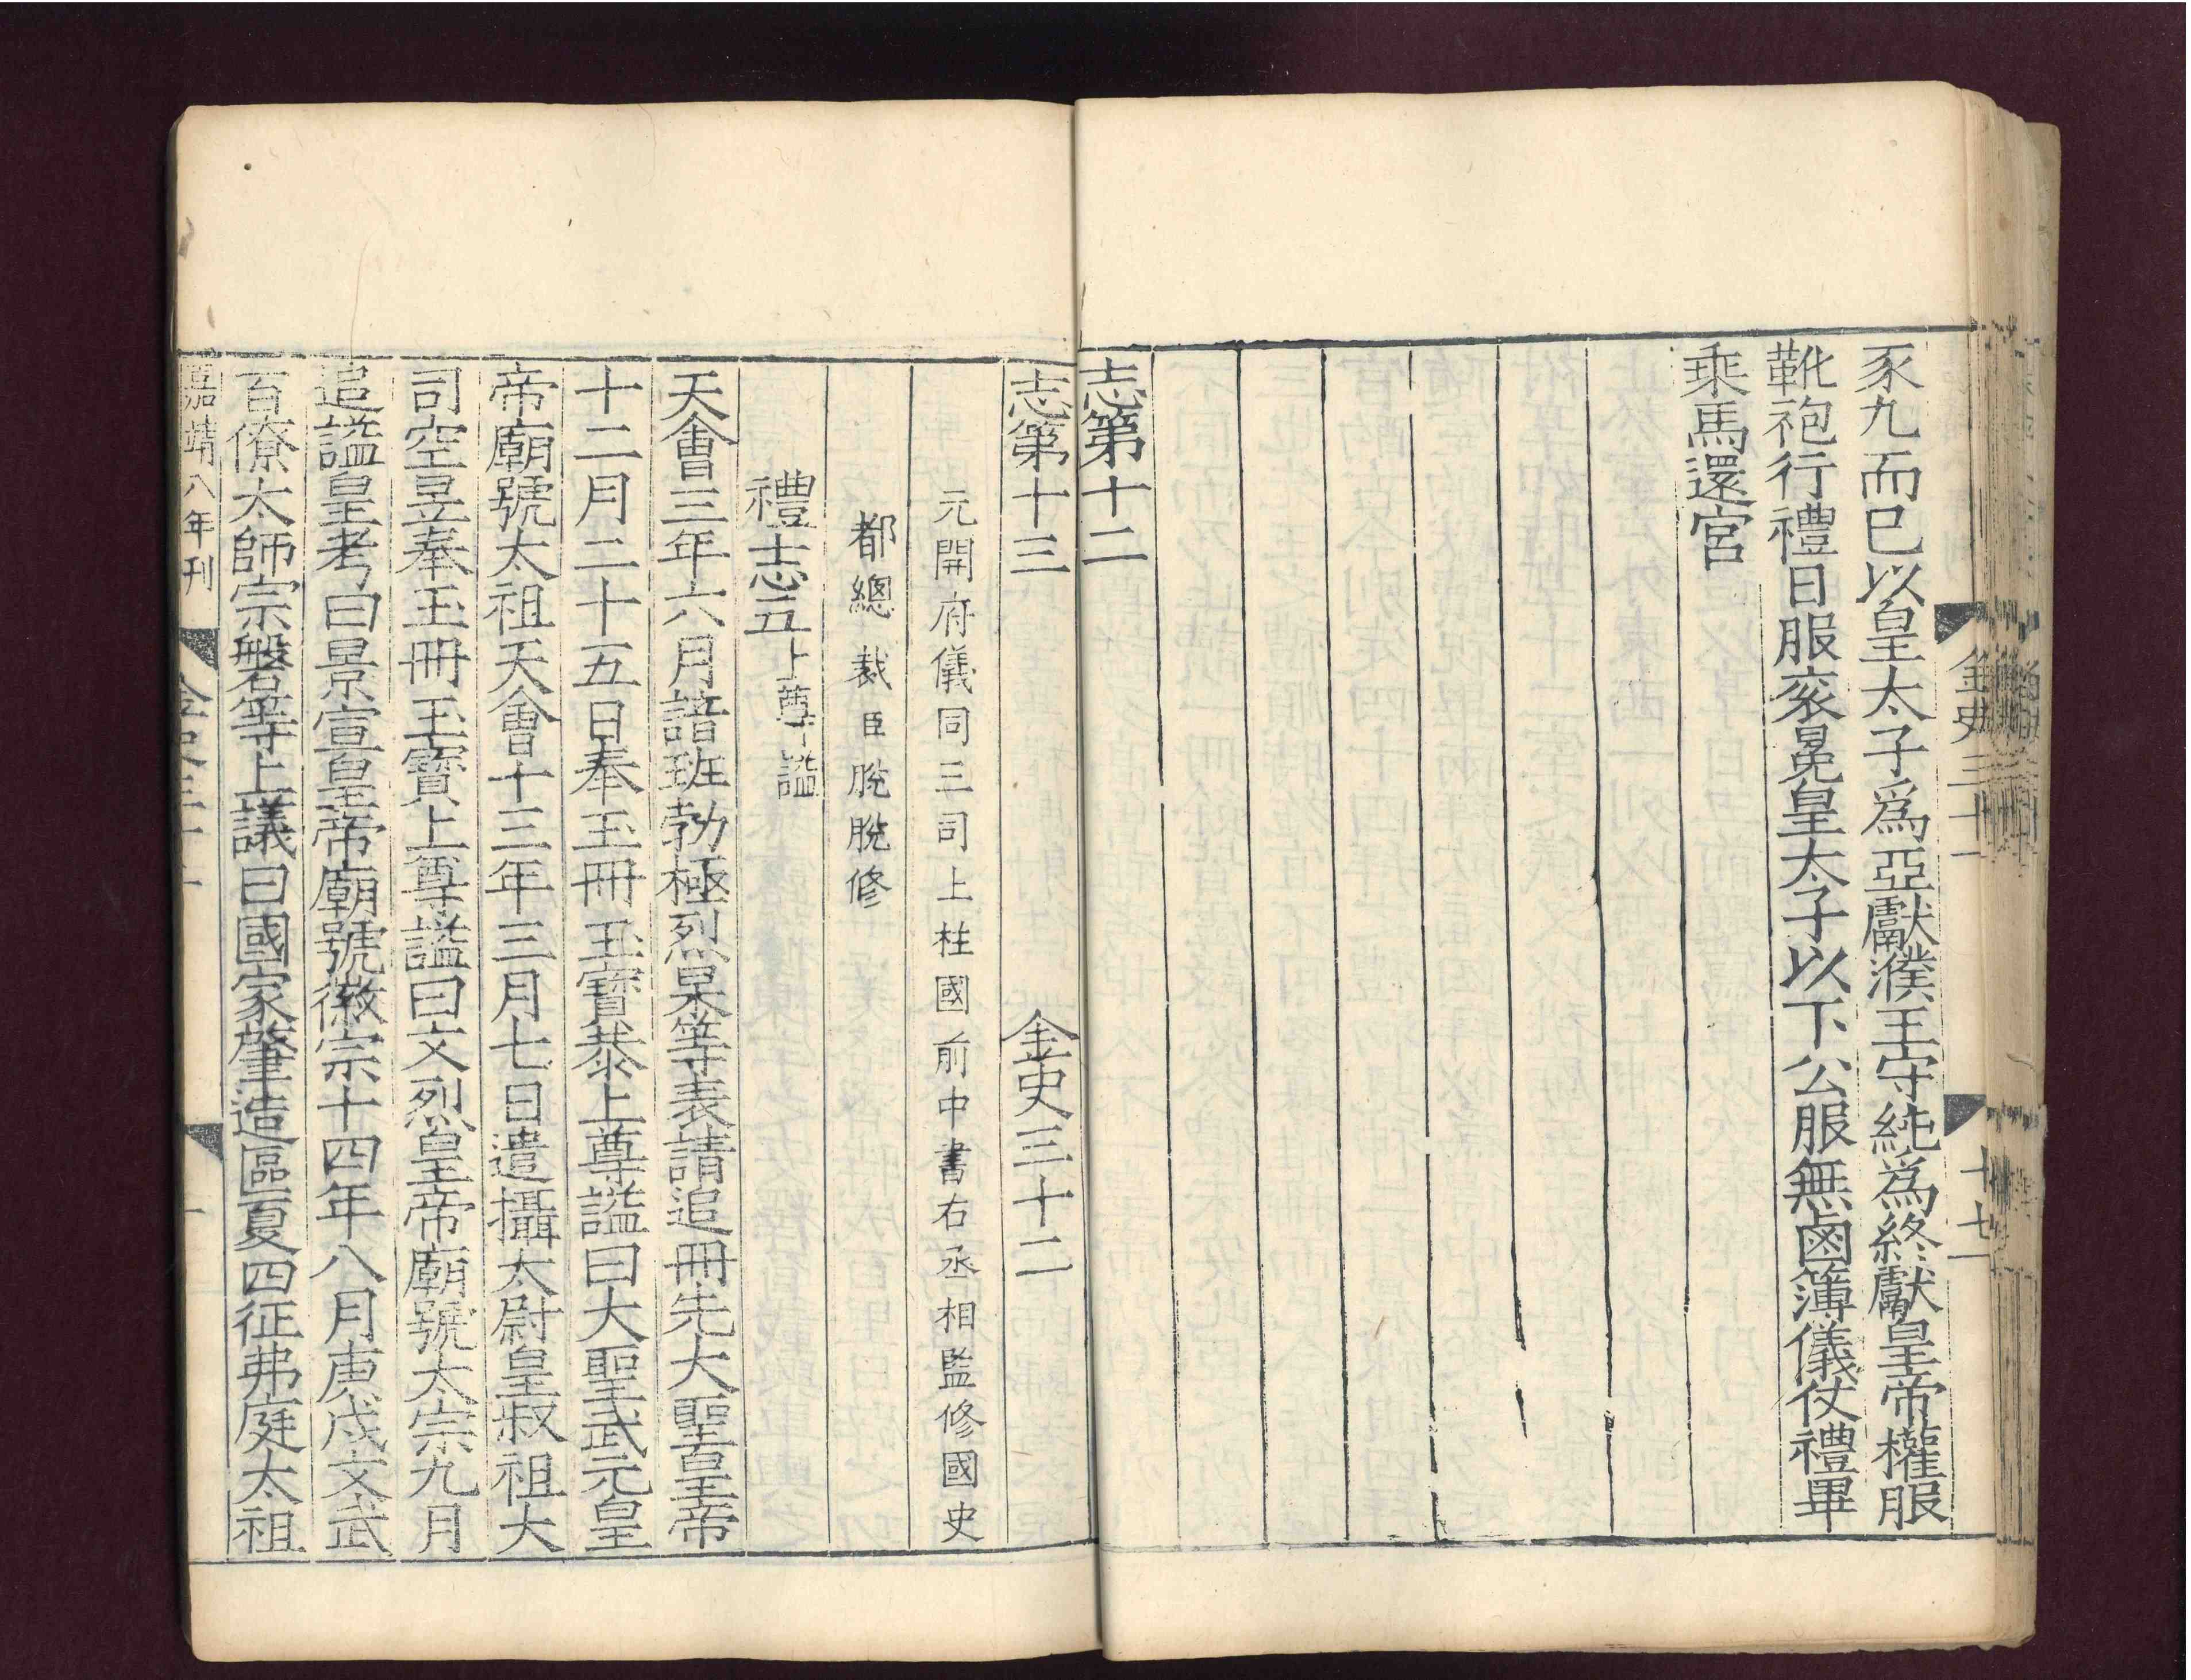 金史三十一 十七
豕九而已以皇太子爲亞獻濮王守純爲終獻皇帝權服
靴袍行禮日服袞冕皇太子以下公服無鹵簿儀仗禮畢
乘馬還宮
志第十二
志第十三 金史三十二
元開府儀同三司上柱國前中書右丞相監修國史
都總裁臣脫脫修
禮志五上尊謚
天會三年六月諳班勃極烈杲等表請追冊先大聖皇帝
十二月二十五日奉玉冊玉寶恭上尊謚曰大聖武元皇
帝廟號太祖天會十三年三月七日遣攝太尉皇叔祖大
司空昱奉玉冊玉寶上尊謚曰文烈皇帝廟號太宗九月
追謚皇考曰景宣皇帝廟號徽宗十四年八月庚戌文武
百僚太師宗磐等上議曰國家肇造區夏四征弗庭太祖
嘉靖八年刊 金史三十二 一